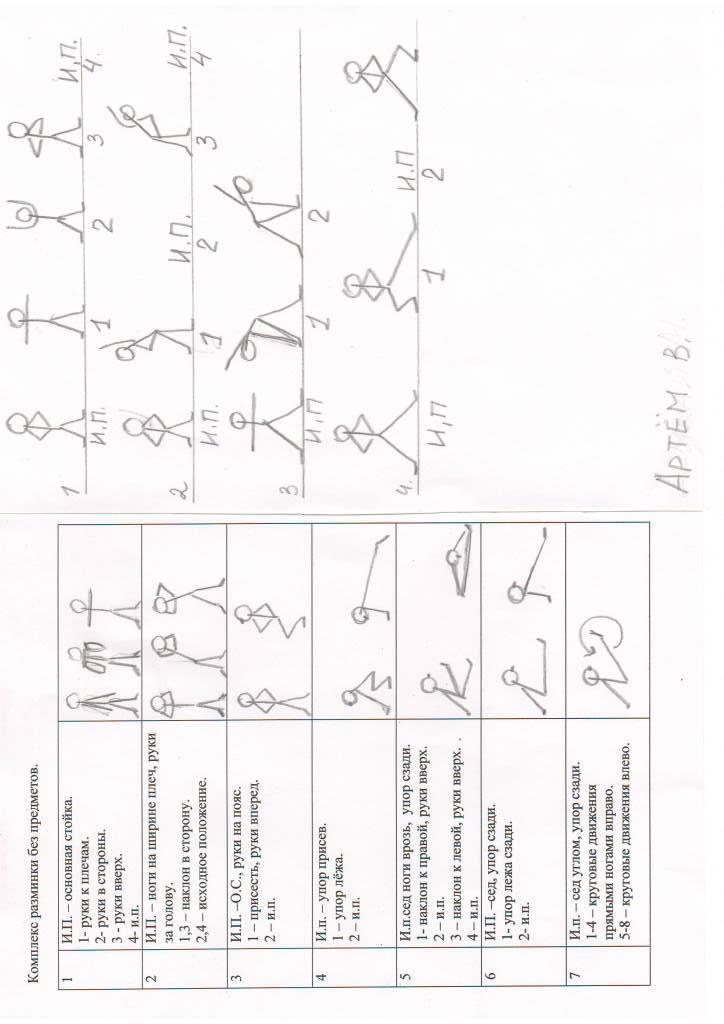 Комплекс разминки без предметов.
1
И.П. – основная стойка.
1- руки к плечам.
2- руки в стороны.
3 - руки вверх.
4- и.п.
2
И.П. – ноги на ширине плеч, руки
за голову.
1,3 – наклон в сторону.
2,4 – исходное положение.
3
И.П. –О.С., руки на пояс.
1 – присесть, руки вперед.
2 – и.п.
4
И.п. – упор присев.
1 – упор лёжа.
2 – и.п.
5
И.п.сед ноги врозь, упор сзади.
1- наклон к правой, руки вверх.
2 – и.п.
3 – наклон к левой, руки вверх. .
4 – и.п.
6
И.П. –сед, упор сзади.
1- упор лежа сзади.
2- и.п.
7
И.п. – сед углом, упор сзади.
1-4 – круговые движения
прямыми ногами вправо.
5-8 – круговые движения влево.
1 И.П. 1 2 3 И.П. 4.
2 И.П. 1 И.П. 2 3 И.П. 4
3 И,П 1 2
4. И,П 1 И.П 2
АРТЁМ В.